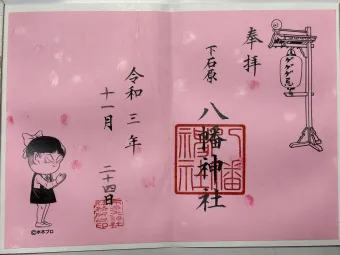 奉拝
下石原
八幡神社
八幡
神社
令和三年
十一月
二十四日
ゲゲゲ忌
©水木プロ